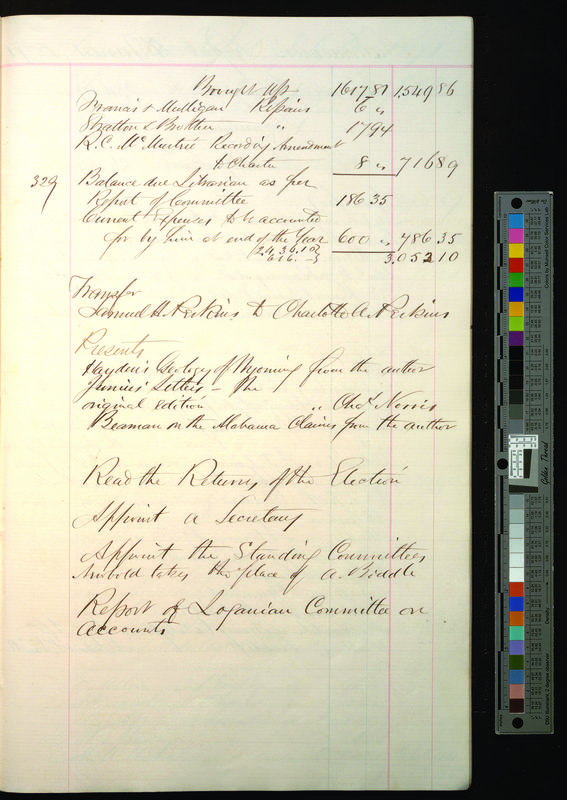 Brought up 1617 81 1,549 86
Francis & Mulligan Repairs 6 "
Stratton & Brother " 17 94
R. C. McMurtrie Recording Amendment
to Charter 8 " 716 89
329 Balance due Librarian as per
Report of Committee 186 35
Current Expenses to be accounted
for by him at end of the Year 600 " 786 35
2436.10
616. 3,052 10
Transfer
Samuel H. Perkins to Charlotte A. Perkins
Presents
Hayden's Geology of Wyoming from the author
Junius' Letters - the
original edition " Chas Norris
Beaman on the Alabama Claims from the author
Read the Returns of the Election
Appoint a Secretary
Appoint the Standing Committees
Newbold takes the place of A. Biddle
Report of Loganian Committee on
Accounts